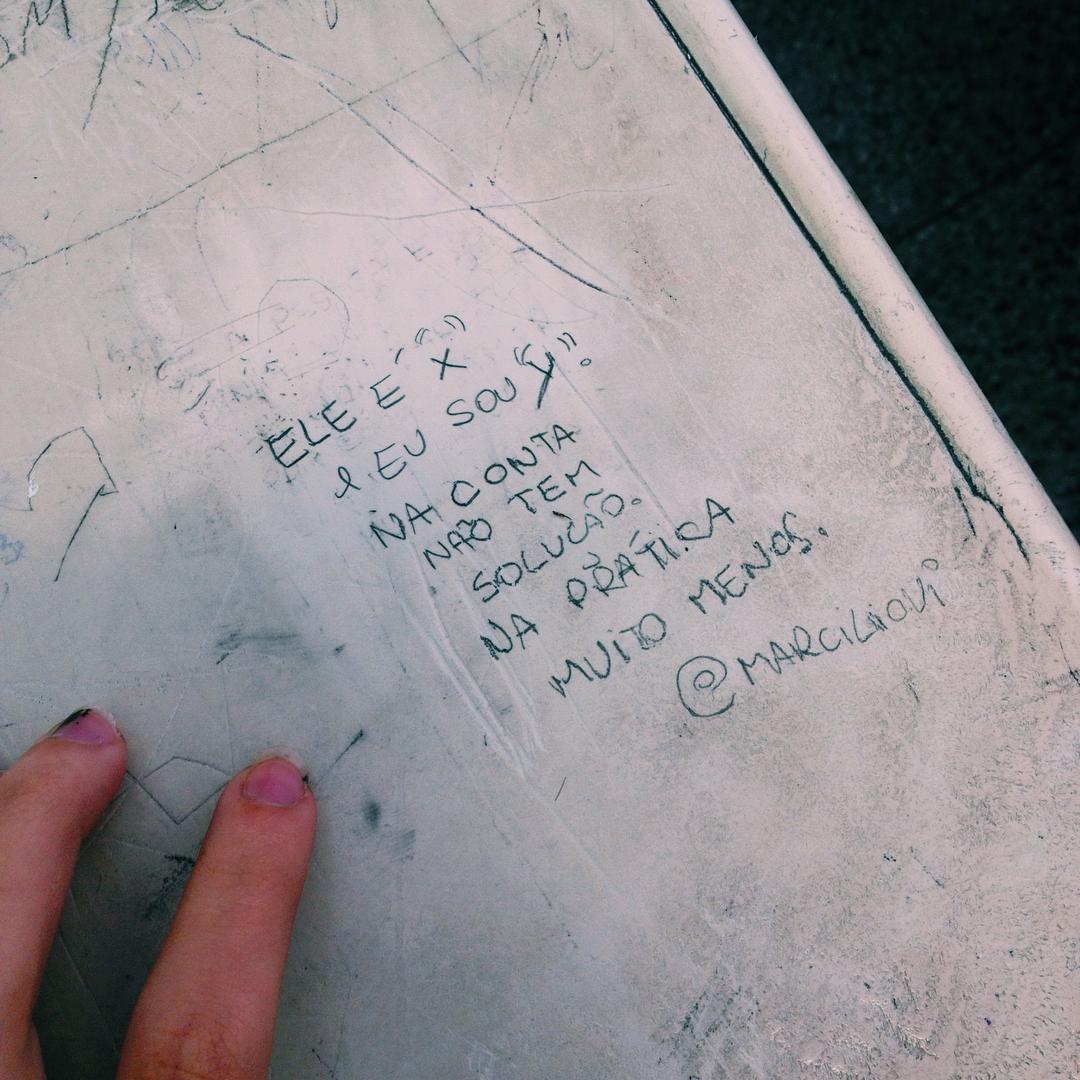 ELE É "X"
e EU SOU "y".
NA CONTA
NÃO TEM
SOLUÇÃO.
NA PRÁTICA
MUITO MENOS.